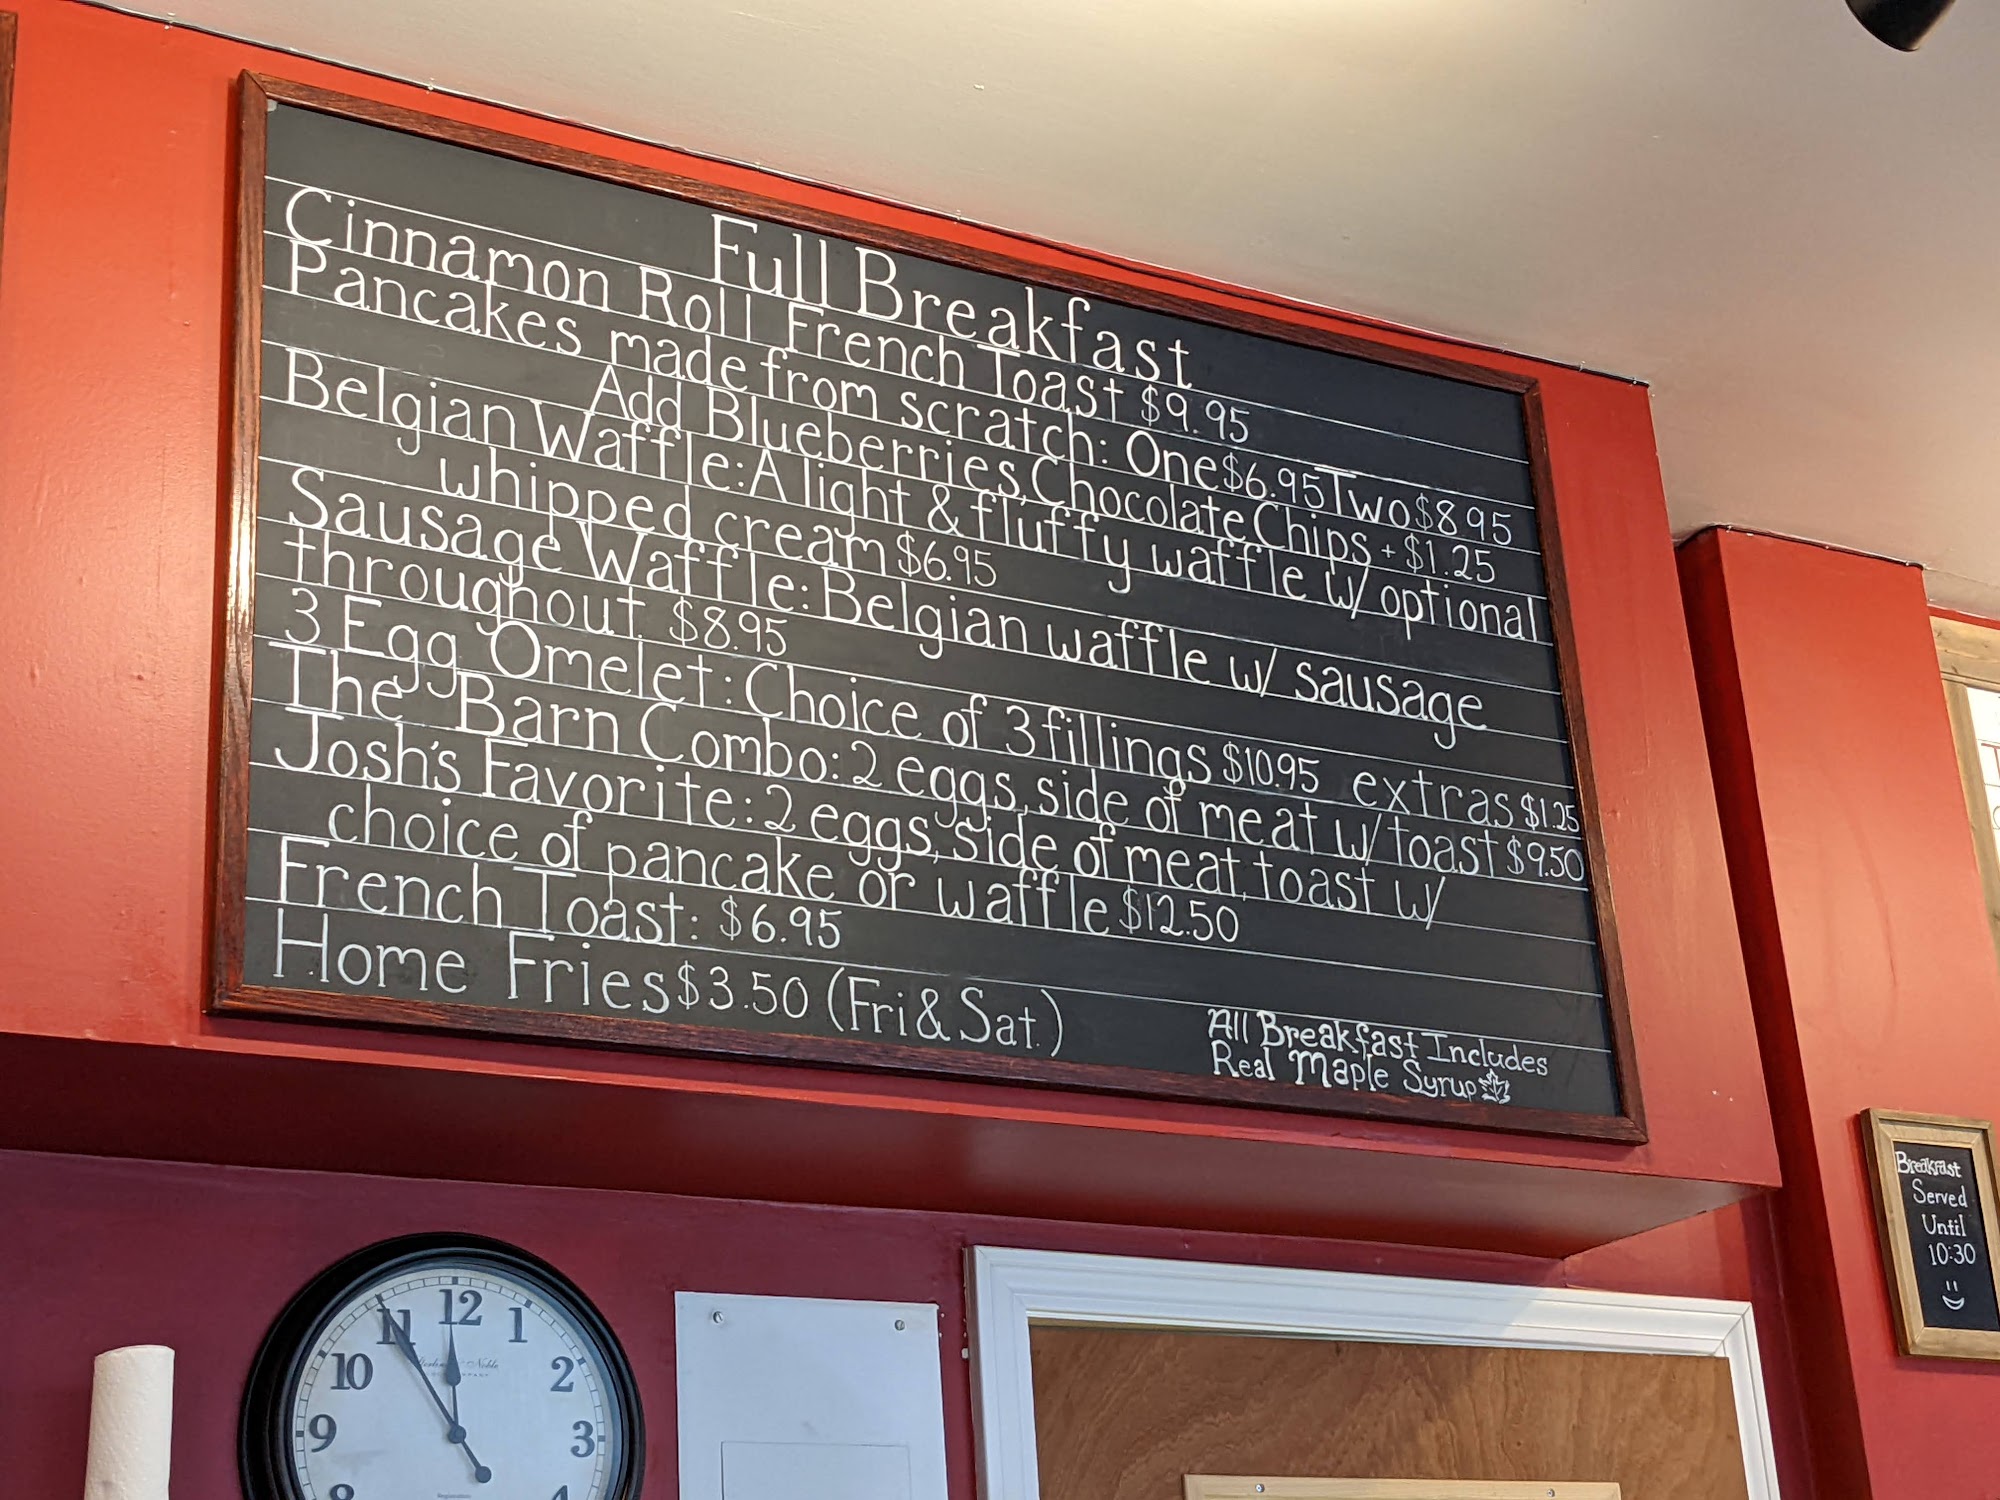 Full Breakfast
Cinnamon Roll French Toast $9.95
Pancakes made from scratch: One $6.95 Two $8.95
Add Blueberries, Chocolate Chips + $1.25
Belgian Waffle: A light & fluffy waffle w/ optional
whipped cream $6.95
Sausage Waffle: Belgian waffle w/ sausage
throughout. $8.95
3 Egg Omelet: Choice of 3 fillings $10.95 extras $1.25
The Barn Combo: 2 eggs, side of meat w/ toast $9.50
Josh's Favorite: 2 eggs, side of meat, toast w/
choice of pancake or waffle $12.50
French Toast: $6.95
Home Fries $3.50 (Fri & Sat.)
All Breakfast Includes
Real Maple Syrup
Breakfast
Served
Until
10:30
12
11
1
10
2
9
3
8
4